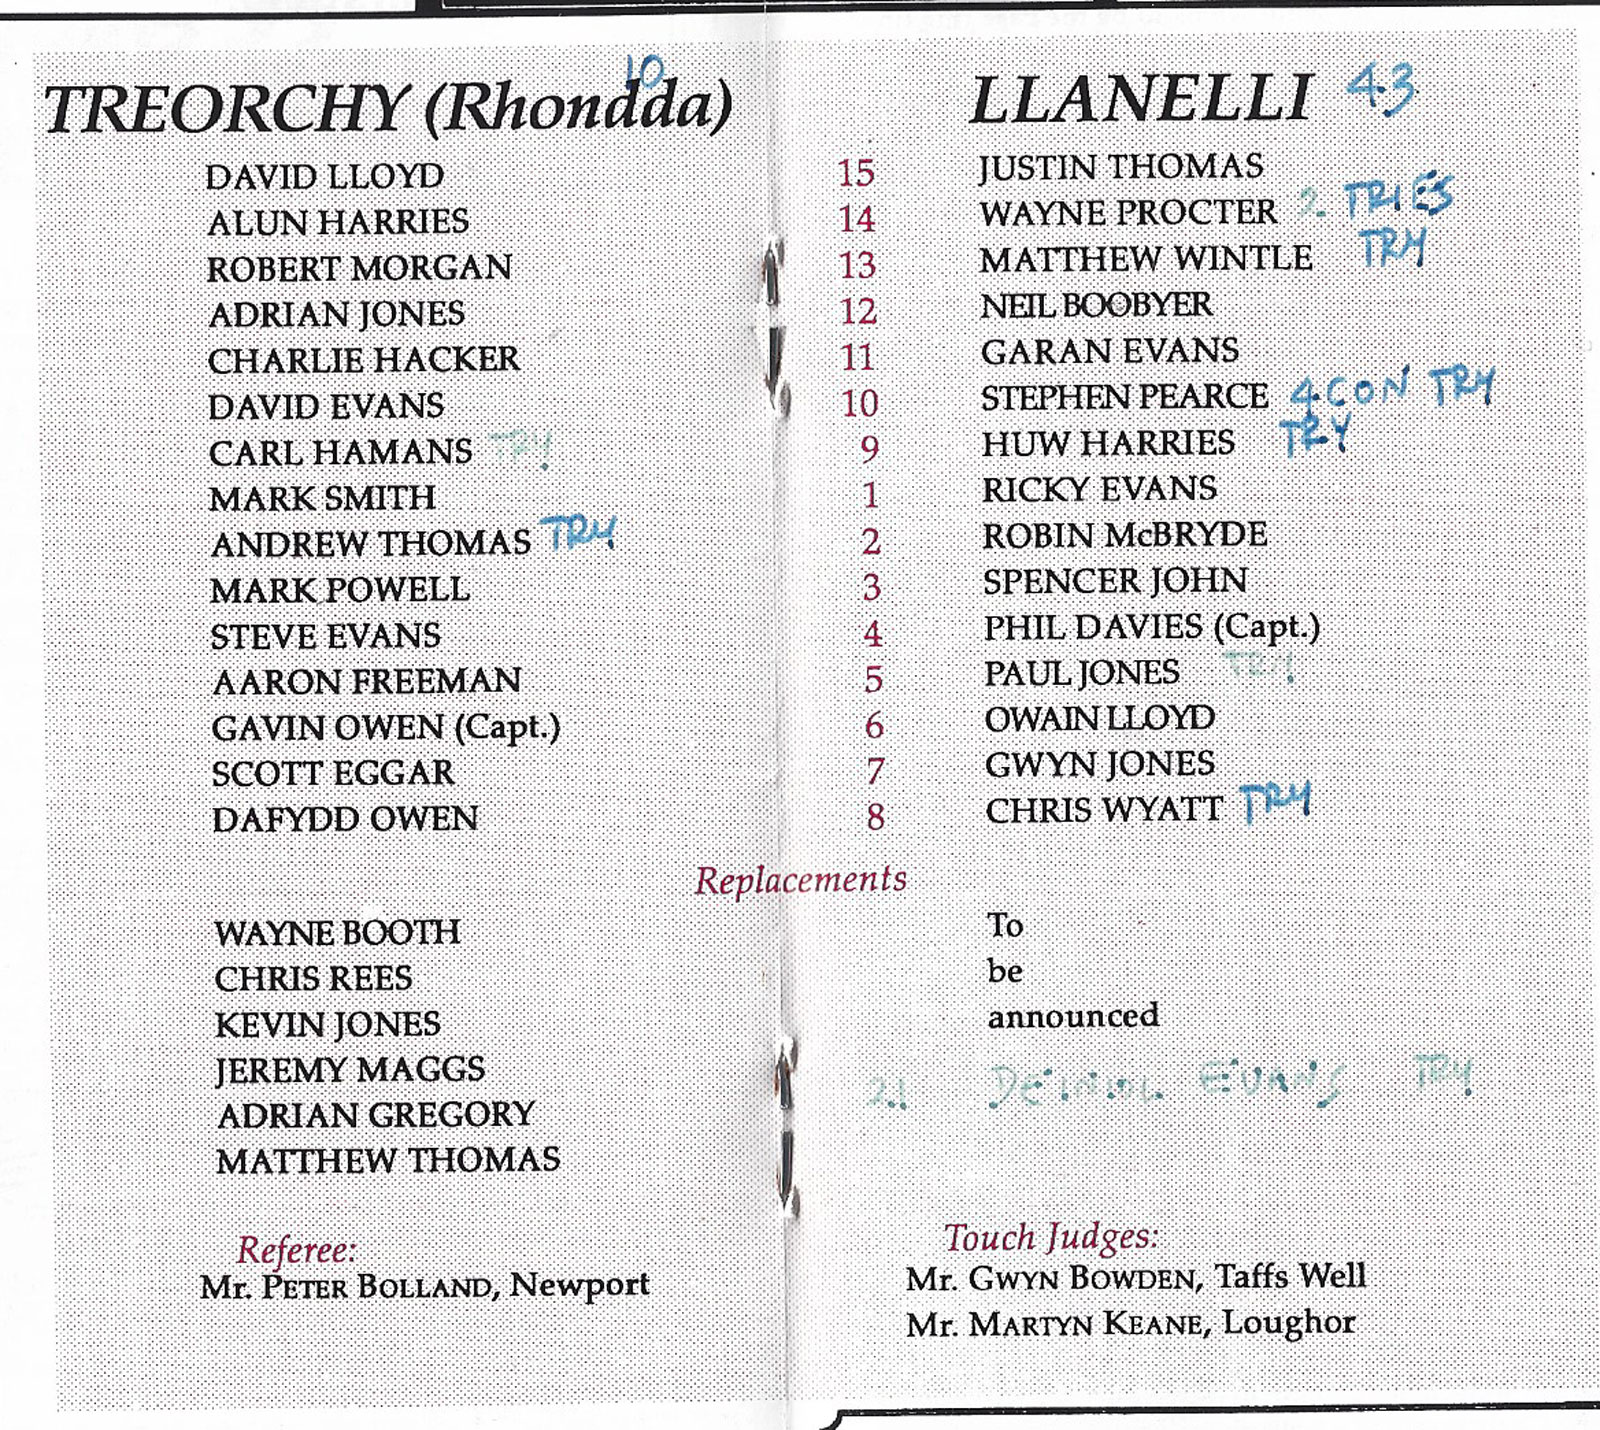 TREORCHY (Rhondda) 10
LLANELLI 43
DAVID LLOYD 15 JUSTIN THOMAS
ALUN HARRIES 14 WAYNE PROCTER 2 TRIES
ROBERT MORGAN 13 MATTHEW WINTLE TRY
ADRIAN JONES 12 NEIL BOOBYER
CHARLIE HACKER 11 GARAN EVANS
DAVID EVANS 10 STEPHEN PEARCE 4 CON TRY
CARL HAMANS TRY 9 HUW HARRIES TRY
MARK SMITH 1 RICKY EVANS
ANDREW THOMAS TRY 2 ROBIN McBRYDE
MARK POWELL 3 SPENCER JOHN
STEVE EVANS 4 PHIL DAVIES (Capt.)
AARON FREEMAN 5 PAUL JONES TRY
GAVIN OWEN (Capt.) 6 OWAIN LLOYD
SCOTT EGGAR 7 GWYN JONES
DAFYDD OWEN 8 CHRIS WYATT TRY
Replacements
WAYNE BOOTH To
CHRIS REES be
KEVIN JONES announced
JEREMY MAGGS 21 DEINIOL EVANS TRY
ADRIAN GREGORY
MATTHEW THOMAS
Referee:
Mr. PETER BOLLAND, Newport
Touch Judges:
Mr. GWYN BOWDEN, Taffs Well
Mr. MARTYN KEANE, Loughor